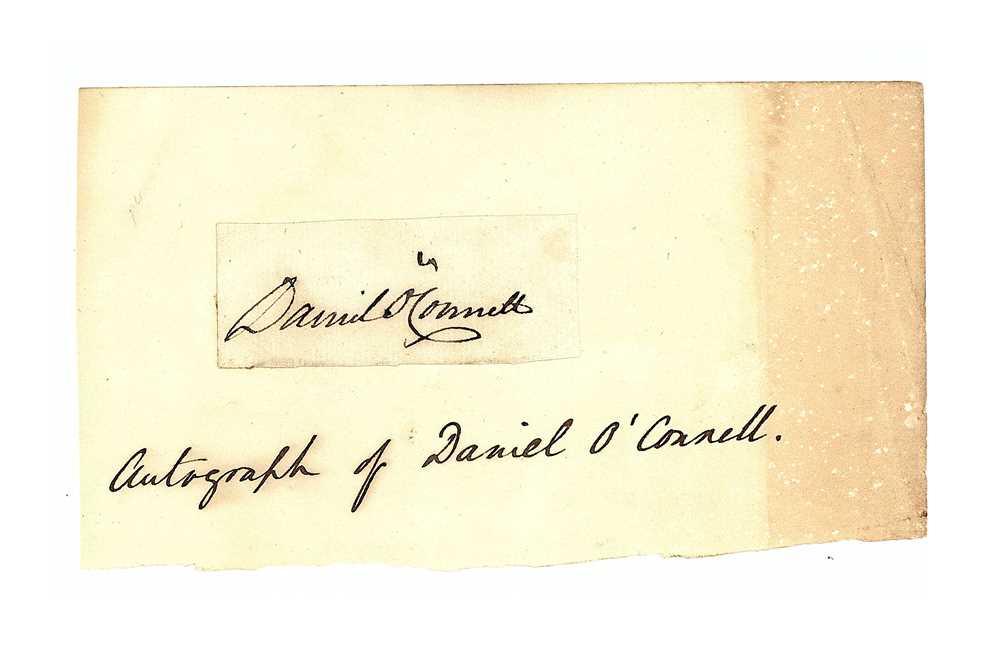 Daniel O'Connell
Autograph of Daniel O'Connell.